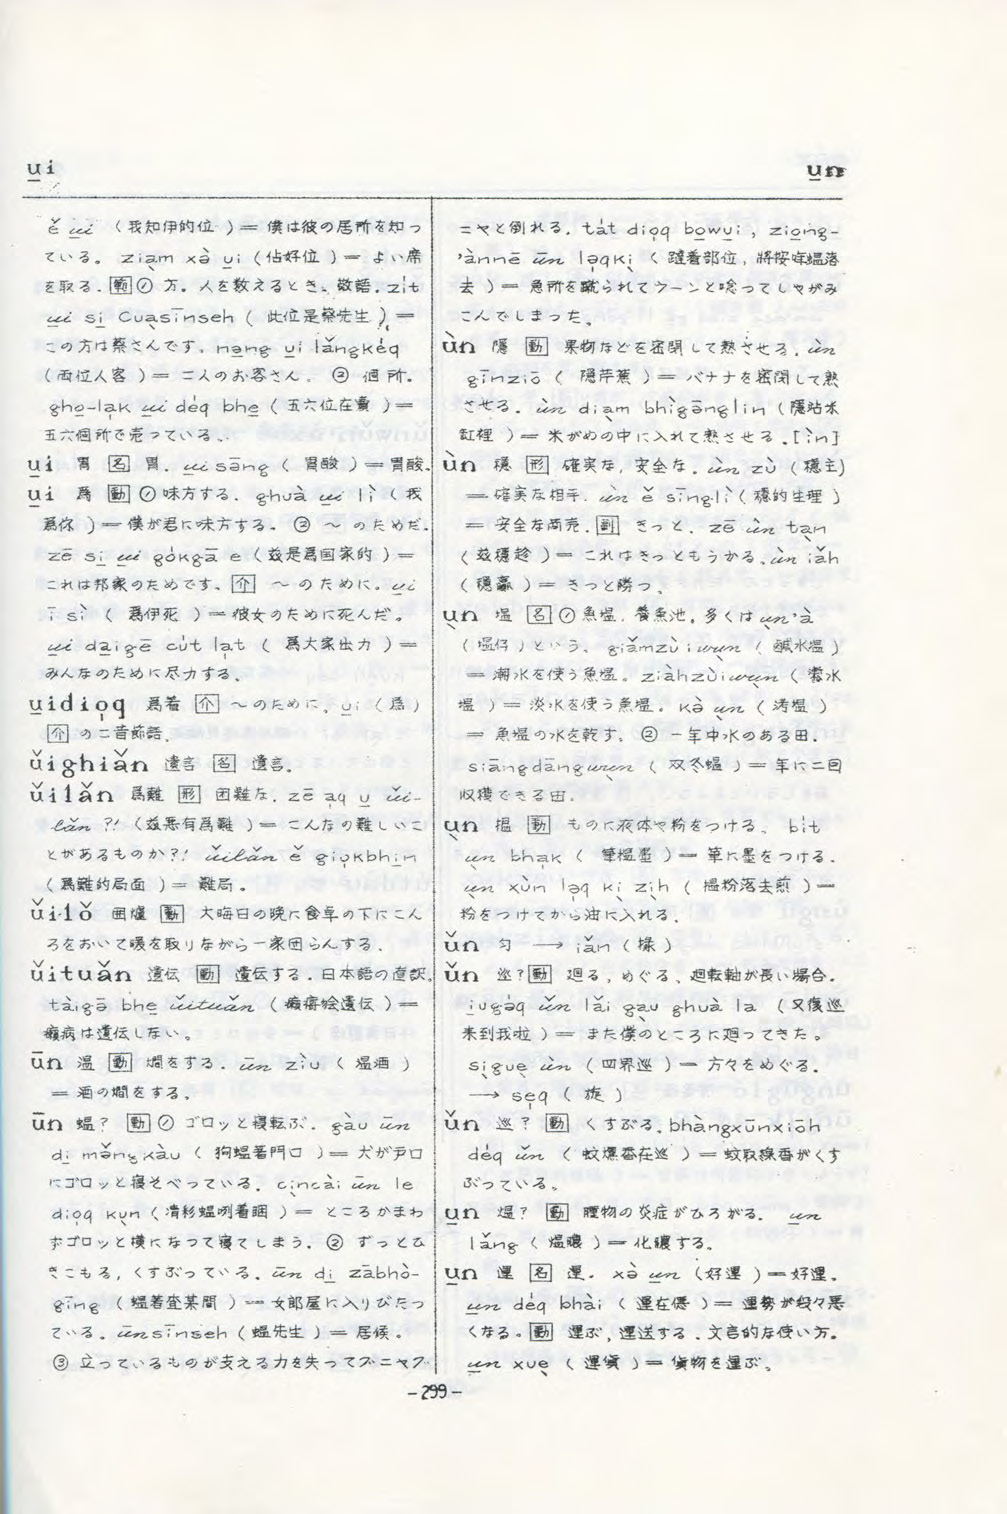 ui
un
ě ui (我知伊的位)＝僕は彼の居所を知っ
ている。ziạm xà ụi (佔好位)＝よい席
を取る. 範① 方。人を数えるとき、敬語. zít
ui si Cuạsīnseh (此位是蔡先生)＝
この方は蔡さんです. nəng ui lǎngkéq
(両位人客)＝二人のお客さん。② 個所。
gho-lak ui déq bhe (五六位在賣)＝
五六個所で売っている.
ui 胃 名 胃. ui sāng (胃酸)＝胃酸.
ui 為 動 ① 味方する. ghuà ui lì (我
為你)＝僕が君に味方する。② ～のためだ.
zē si ui gókgā e (玆是為囯家的)＝
これは邦家のためです. 介 ～のために。ui
ī sì (為伊死)＝彼女のために死んだ。
ui daigē cút lat (為大家出力)＝
みんなのために尽力する.
uidioq 為着 介 ～のために. ui (為)
介 の二音節語.
ǔighiǎn 遺言 名 遺言.
ǔilǎn 為難 形 困難な. zē aq u ǔi-
lǎn ?! (玆悪有為難)＝こんなの難しいこ
とがあるものか?! ǔilǎn ě giokbhin
(為難的局面)＝難局。
ǔilǒ 囲爐 動 大晦日の晩に食卓の下にこん
ろをおいて暖を取りながら一家団らんする.
ǔituǎn 遺伝 動 遺伝する. 日本語の直訳.
tàigō bhe ǔituǎn (癩𤺪𣍐遺伝)＝
癩病は遺伝しない。
ūn 温 動 燗をする. ūn ziù (温酒)
＝酒の燗をする.
ūn 蝹? 動 ① ゴロッと寝転ぶ. gàu ūn
di mǎngkàu (狗蝹著門口)＝犬が戸口
にゴロッと寝そべっている. cincài ūn le
dioq kun (凊彩蝹咧着睏)＝ところかまわ
ずゴロッと横になって寝てしまう. ② ずっとひ
きこもる, くすぶっている. ūn di zābhò-
gīng (蝹著査某間)＝女部屋に入りびたっ
ている. ūnsīnseh (蝹先生)＝居候。
③ 立っているものが支える力を失ってズニャフ
ニャと倒れる. tát dioq bowui, ziong-
'ànnē ūn ləqki (躂着部位, 將按哖蝹落
去)＝急所を蹴られてウーンと唸ってしゃがみ
こんでしまった.
ùn 隱 動 果物などを密閉して熟させる. ùn
gīnziō (隱芹蕉)＝バナナを密閉して熟
させる. ùn diam bhigānglin (隱站米
缸裡)＝米がめの中に入れて熟させる. [ìn]
ùn 穩 形 確実な, 安全な. ùn zù (穩主)
＝確実な相手. ùn ě sīnglì (穩的生理)
＝安全な商売. 副 きっと. zē ùn tạn
(玆穩趁)＝これはきっともうかる. ùn iǎh
(穩贏)＝きっと勝つ.
un 塭 名 ① 魚塭. 養魚池. 多くは un'à
(塭仔)という. giǎmzùi wun (鹹水塭)
＝潮水を使う魚塭. ziàhzùi wun (饗水
塭)＝淡水を使う魚塭. kò un (涸塭)
＝魚塭の水を乾す. ② 一年中水のある田.
siāngdāng wun (双冬塭)＝年に二回
収穫できる田.
un 搵 動 ものに液体や粉をつける. bít
un bhak (筆搵墨)＝筆に墨をつける.
un xùn ləq ki zih (搵粉落去煎)＝
粉をつけてから油に入れる.
ǔn 匀 → iǎn (橼)
ǔn 巡? 動 廻る, めぐる. 廻転軸が長い場合.
iugəq ǔn lǎi gau ghuà la (又復巡
来到我啦)＝また僕のところに廻ってきた。
sigue ǔn (四界巡)＝方々をめぐる.
→ seq (旋)
ǔn 巡? 動 くすぶる. bhàngxūnxiōh
déq ǔn (蚊燻香在巡)＝蚊取線香がくす
ぶっている。
un 熅? 動 腫物の炎症がひろがる. un
lǎng (熅膿)＝化膿する.
un 運 名 運. xò un (好運)＝好運.
un déq bhài (運在僫)＝運勢が段々悪
くなる。動 運ぶ, 運送する. 文言的な使い方.
un xue (運貨)＝貨物を運ぶ.
- 299 -